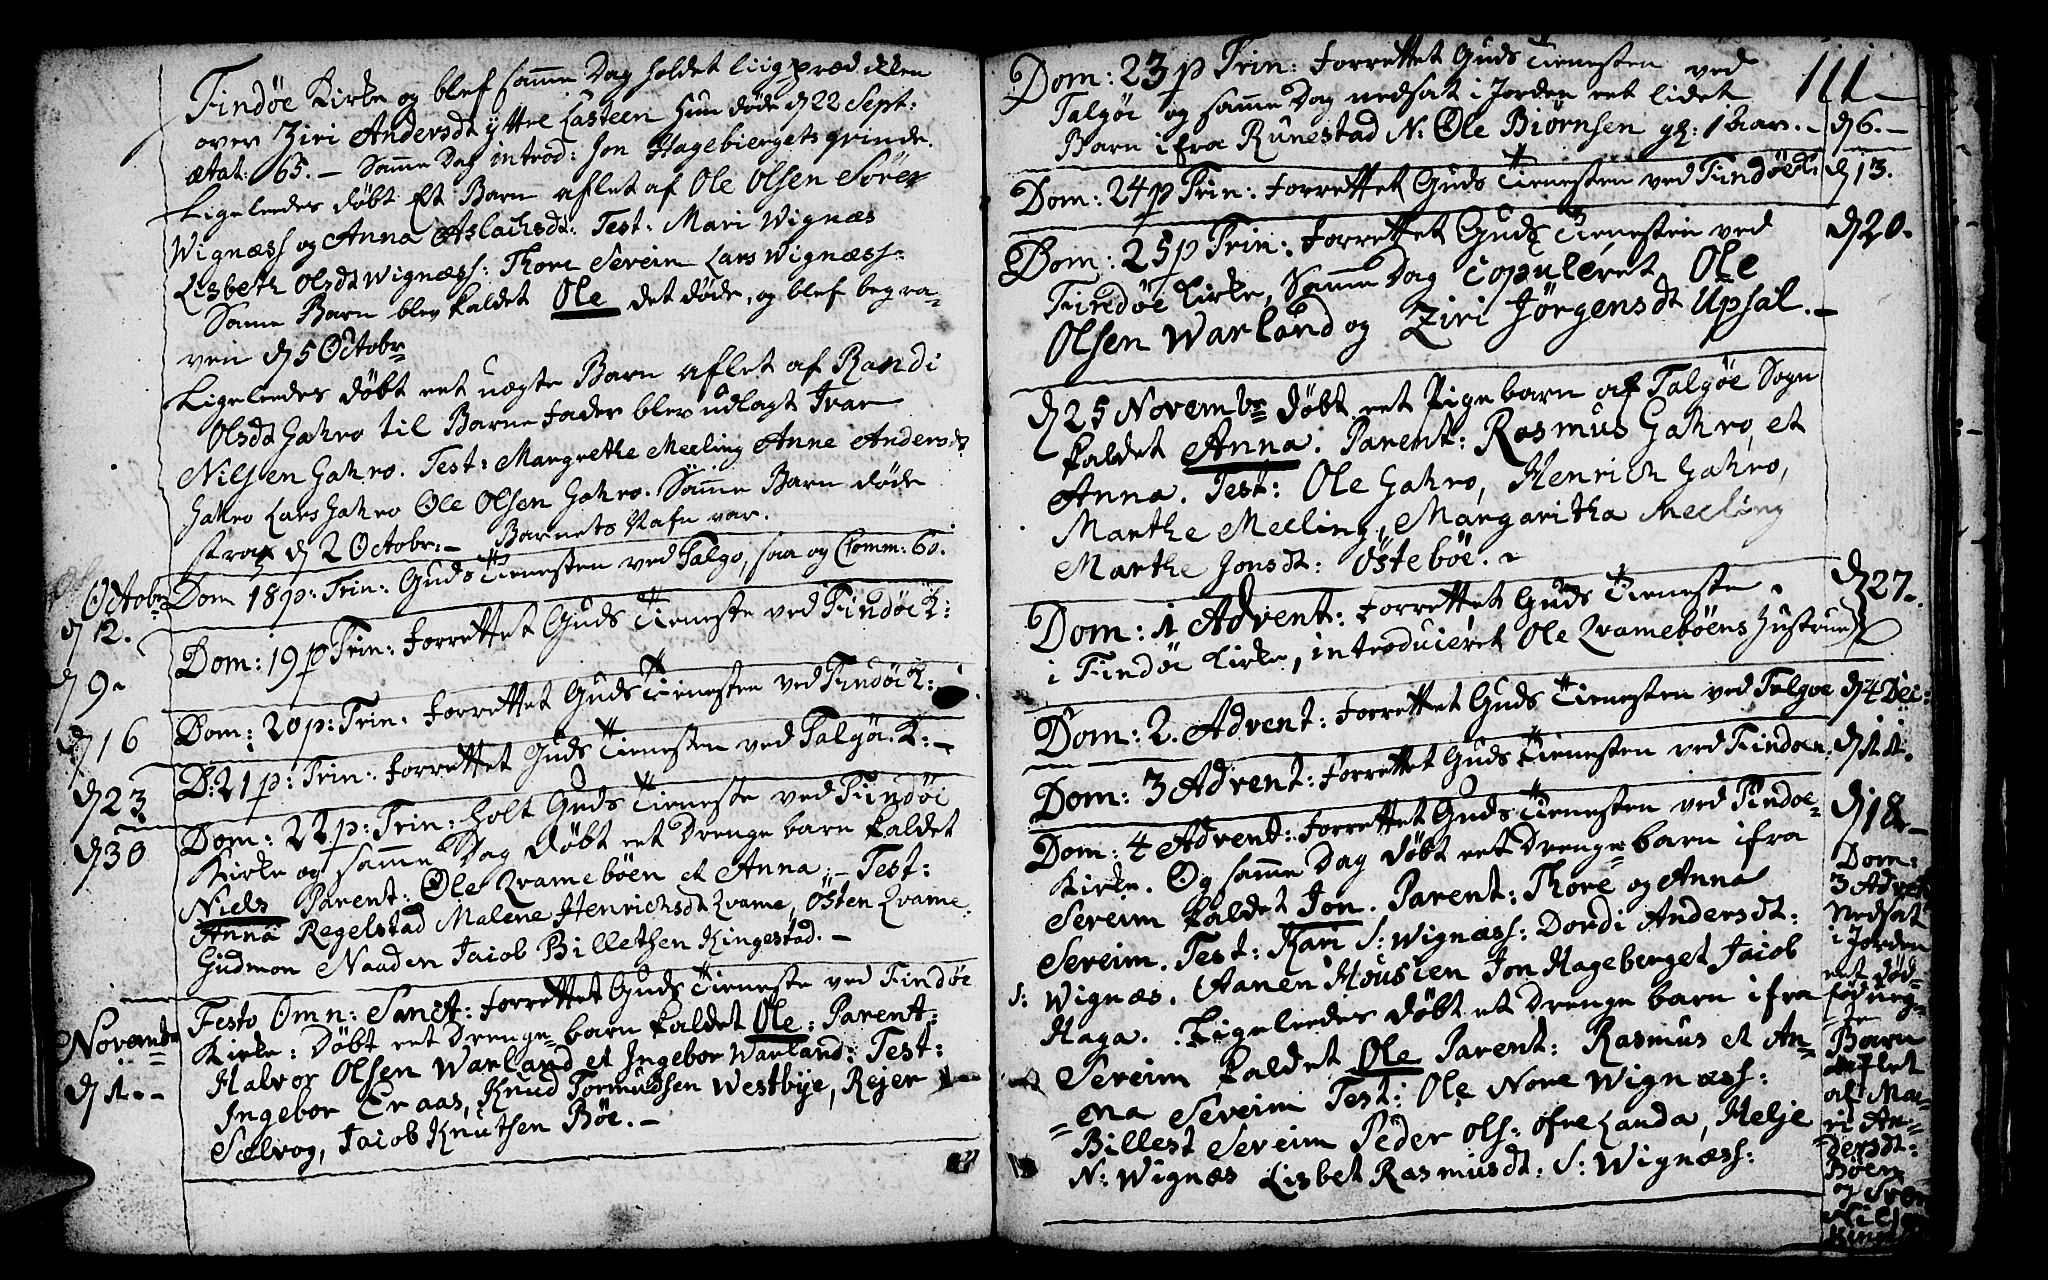 Findöe Kirke og blef samme Dag holdet liigprædicken
over Ziri Andersdt yttre Lasteen hun døde d 22 Sept:
ætat: 65. – Samme Dag introd: Jon Hagebiergets qvinde.
Ligeleedes døbt Et Barn aflet af Ole Olsen Sörer
Wignæss og Anna Aslachsdt: Test: Mari Wignæs
Lisbeth Olsdt Wignæss: Thore Sereim Lars Wignæss:
Samme Barn blev kaldet Ole det døde, og blef begra-
ven d 5 Octobr
Ligeleedes døbt eet uægte Barn aflet af Randi
Olsdt Hahro til Barne Fader blev udlagt Ivar
Nilsen Hahro. Test: Margrethe Meeling Anne Andersdt
Hahro Lars Hahro Ole Olsen Hahro. Samme Barn døde
strax d 2 Octobr: – Barnets Nafn var.
Octobr
d 2.
Dom 18 p: Trin: Guds Tienesten ved Talgo, saa og Comm: 60.
d 9
Dom: 19 p Trin: Forrettet Guds Tieneste ved Findöe K:
d 16
Dom: 20 p: Trin: Forrettet Guds Tienesten ved Findöe K:
d 23
D: 21 p: Trin: Forrettet Guds Tienesten ved Talgöe K: –
d 30
Dom: 22 p: Trin: holt Guds Tieneste ved Findöe
Kirke og samme Dag döbt eet Drenge barn kaldet
Niels Parent: Ole Qvameböen et Anna. – Test:
Anna Regelstad Malene Henrichsdt Qvame, Östen Qvame
Gudmon Naaden Jacob Billethsen Kingestad. –
Novembr
d 1. –
Festo Omn: Sanct: Forrettet Guds Tieneste ved Findöe
Kirke: Döbt eet Drenge barn kaldet Ole: Parent:
Halvor Olsen Warland et Ingebor Warland: Test:
Ingebor Eraas, Knud Tormudsen Westbye, Rejer
Selvog, Jacob Knutsen Böe. –
111
Dom: 23 p Trin: Forrettet Guds Tienesten ved
Talgöe og samme Dag nedsat i Jorden eet lidet
Barn ifra Runestad N: Ole Biørnsen gl: 1 Aar. –
d 6. –
Dom: 24 p Trin: Forrettet Guds Tienesten ved Findöe K:
d 13.
Dom: 25 p Trin: Forrettet Guds Tienesten ved
Findöe Kirke, Samme Dag Copuleret Ole
Olsen Warland og Ziri Jörgensdt Upsal. –
d 20.
d 25 Novembr döbt eet Pige barn af Talgöe Sogn
kaldet Anna. Parent: Rasmus Hahro, et
Anna. Test: Ole Hahro, Henrich Hahro,
Marthe Meeling, Margaritha Meeling
Marthe Jonsdt: Östebøe.
Dom: 1 Advent: Forrettet Guds Tieneste
i Findöe Kirke, introduceret Ole Qvamebøens Hustrue
d 27.
Dom: 2. Advent: Forrettet Guds Tienesten ved Talgoe
d 4 Dec:
Dom: 3 Advent: Forrettet Guds Tienesten ved Findoen
d 11.
Dom: 4 Advent: Forrettet Guds Tienesten ved Findoe
Kirke. Og samme Dag döbt eet Drenge barn ifra
Sereim kaldet Jon. Parent: Thore og Anna
Sereim. Test: Kari S: Wignæss: Dordi Andersdt:
S: Wignæs. Aanen Housken Jon Hageberget Jacob
Haga. Ligeleedes döbt et Drenge barn ifra
Sereim kaldet Ole Parent: Rasmus et An-
na Sereim Test: Ole Nore Wignæss:
Billest Sereim Peder Ols: Øfre Landa, Helje
N: Wignæs Lisbet Rasmusdt: S: Wignæss:
d 18 –
Dom:
3 Advent
Nedsat
i Jorden
eet död-
föd ueg-
te
Barn
aflet
af Ma-
ri An-
dersdt:
Böen
og Sven